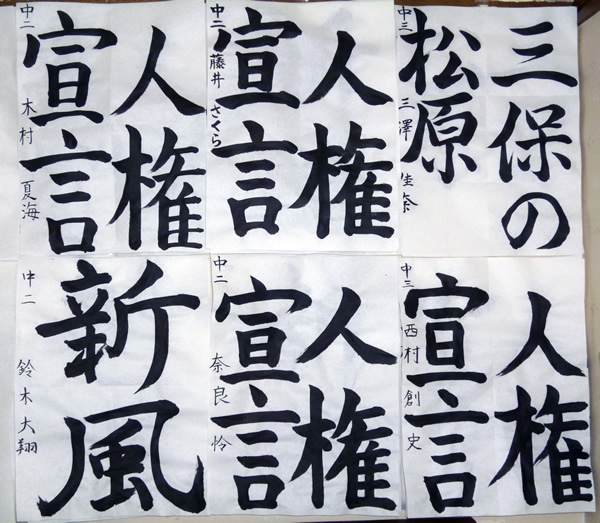 人権
宣言
中二 木村 夏海
人権
宣言
中二 藤井 さくら
三保の
松原
中三 三澤 佳奈
新風
中二 鈴木 大翔
人権
宣言
中二 奈良 怜
人権
宣言
中三 西村 創史